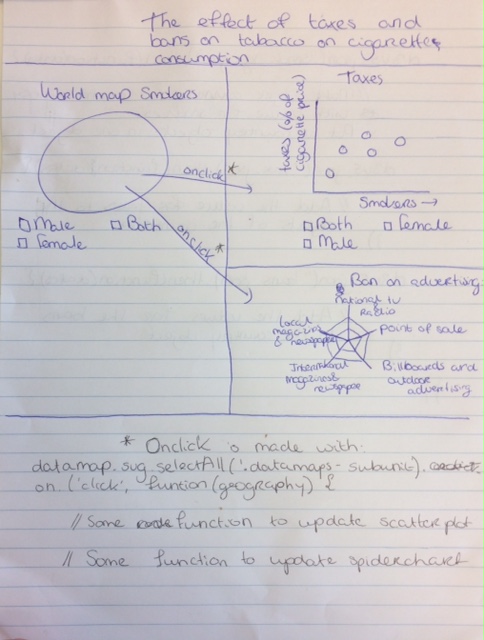 The effect of taxes and
bans on tabacco on cigarettes
consumption
World map Smokers
onclick *
onclick *
□ Male □ Both
□ Female
Taxes
taxes (% of
cigarette price)
Smokers →
□ Both □ Female
□ Male
Ban on advertising
National tv
Radio
Point of sale
Billboards and
outdoor
advertising
International
magazines &
newspape
Local
magazine
& newspaper
* Onclick is made with:
datamap.svg.selectAll('.datamaps-subunit').
on ('click', funtion(geography) {
// Some function to update scatterplot
// Some function to update spiderchart